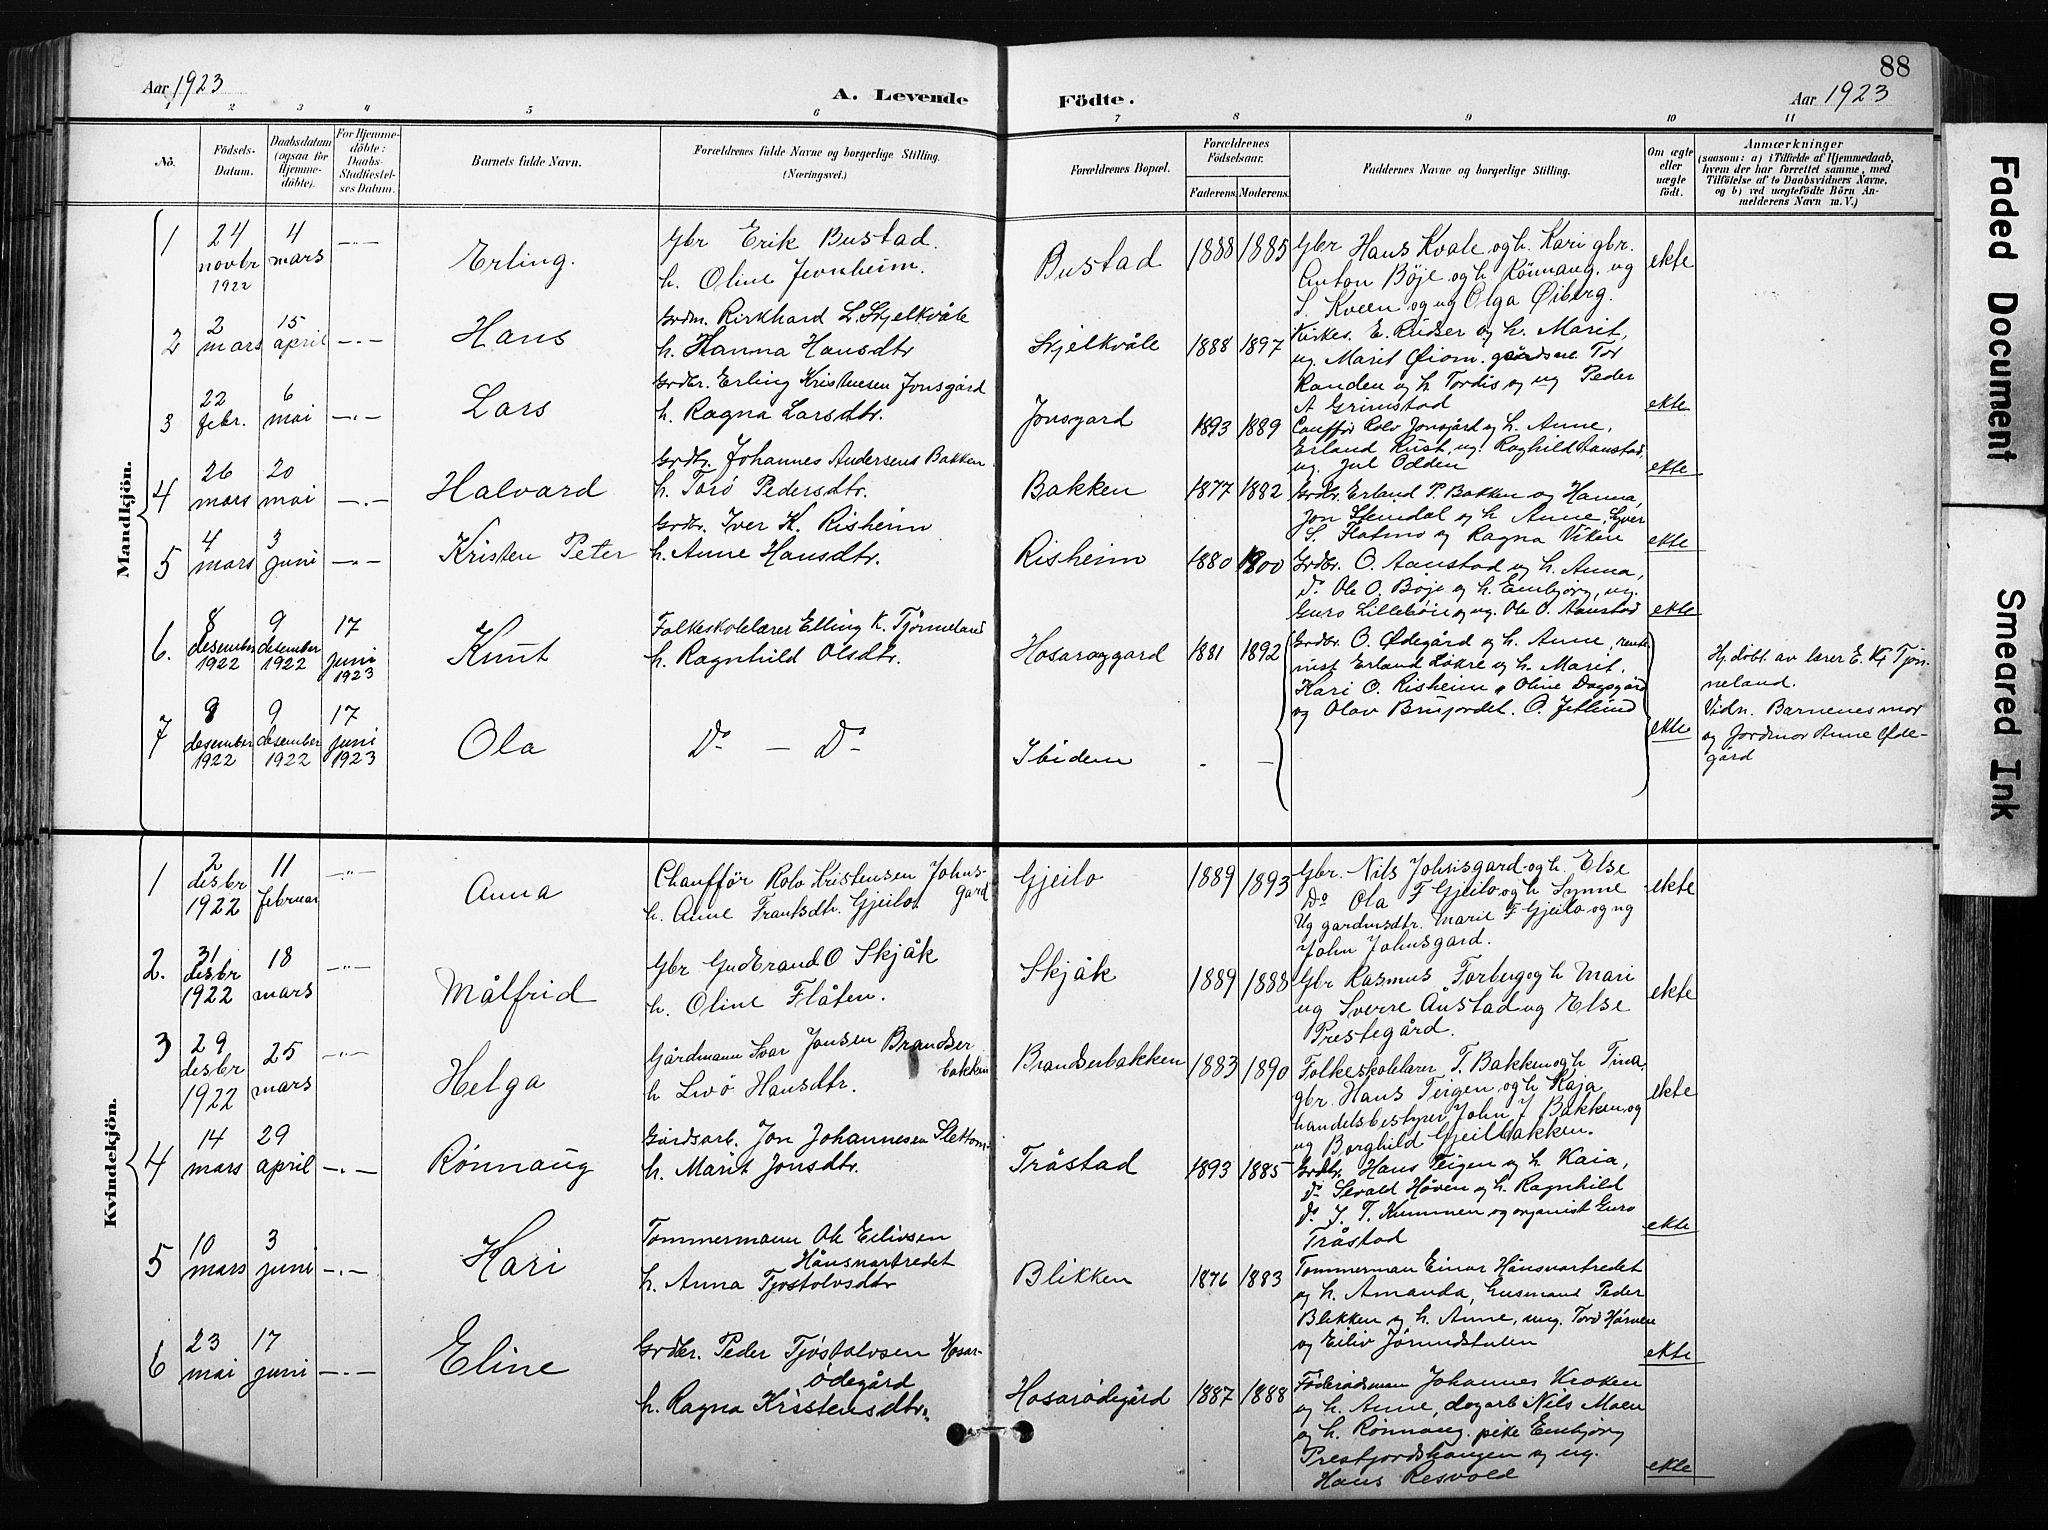 88
Aar 1923
A. Levende Födte.
Aar 1923
1 2 3 4 5 6 7 8 9 10 11
No.
Födsels-Datum.
Daabsdatum (ogsaa for Hjemmedöbte).
For Hjemmedöbte: Daabs-Stadfæstelses Datum.
Barnets fulde Navn.
Forældrenes fulde Navne og borgerlige Stilling. (Næringsvei.)
Forældrenes Bopæl.
Forældrenes Födselsaar.
Faderens. Moderens.
Faddernes Navne og borgerlige Stilling.
Om ægte eller uægte födt.
Anmærkninger
(saasom: a) i Tilfælde af Hjemmedaab,
hvem der har forrettet samme, med
Tilföielse af to Daabsvidners Navne,
og b) ved uægtefödte Börn An-
melderens Navn m. V.)
Mandkjön.
1 24 novbr 1922 4 mars -"- Erling.
Gbr Erik Bustad.
h. Oline Jevnheim.
Bustad 1888 1885
Gbr Hans Kvale og h. Kari gbr.
Anton Böje og h Rönnaug. ug
S. Kveen og ug Olga Øiberg.
ekte
2 2 mars 15 april -"- Hans
Grdm. Rirkhard L. Skjelkvåle
h. Hanna Hansdtr
Skjelkvåle 1888 1897
Kirkes. E. Rudser og h. Marit,
ug. Marit Øiom. gårdsm. Tor
Randen og h Tordis og ug Peder
A Grimstad
ekte
3 22 febr. 6 mai -"- Lars
Grdbr. Erling Kristensen Jonsgård
h. Ragna Larsdtr.
Jonsgard 1893 1889
Cauffør Rolv Jonsgård og h. Anne,
Erland Rust, ug. Raghild Aanstad,
ug. Jul Odden
ekte
4 26 mars 20 mai -"- Halvard
Grdbr. Johannes Andersens Bakken
h. Torö Pedersdtr.
Bakken 1877 1882
Grdbr. Erland P. Bakken og Hanna,
Jon Stendal og h. Anne, Syver
S. Flatmo og Ragna Viken
ekte
5 4 mars 3 juni -"- Kristen Peter
Grdbr. Iver K. Risheim
h. Anne Hansdtr.
Risheim 1880 1900
Grdbr. O. Aanstad og h. Anna,
Do Ole O. Böje og h. Embjörg, ug.
Guro Lilleböie og ug. Ole O. Aanstad
ekte
6. 8 desember 1922 9 desember 1922 17 juni 1923 Knut
Folkeskolelærer Elling K. Tjönneland
h. Ragnhild Olsdtr.
Hosaroygard 1881 1892
Grdbr. O. Ødegård og h. Anne,
Erland Lökre og h. Marit,
Kari O. Risheim, Oline Dagsgård
og Olav Brujordet. O. Jetlund
Hj. döbt. av lærer E. K. Tjön-
neland.
Vidn. Barnenes mor
og Jordmor Anne Øde-
gård
7 8 desember 1922 9 desember 1922 17 juni 1923 Ola
Do - Do
Ibidem - -
ekte
Kvindekjön.
1 2 desbr 1922 11 februar -"- Anna
Chauffør Rolv Kristensen Johns-
gard
h. Anne Fransdtr. Gjeilo.
Gjeilo 1889 1893
Gbr. Nils Johnsgard og h. Else
Do Ola F Gjeilo og h Synne
Ug gardmsdtr. Marie F Gjeilo og ug
John Johnsgard.
ekte
2. 31 desbr 1922 18 mars -"- Målfrid
Gbr Gudbrand O Skjåk
h. Oline Flåten.
Skjåk 1889 1888
Gbr Rasmus Forbrug og h Mari
ug Sverre Anstad ug Else
Prestegård.
ekte
3 29 desbr 1922 25 mars -"- Helga
Gårdmann Ivar Jonsen Brandser
bakken
h Livö Hansdtr.
Brandserbakken 1883 1890
Folkeskolelærer T. Bakken og h. Tina
gbr. Hans Teigen og h Kaja
handelsbestyrer John J Bakken og
ug Borghild Gjeilbakken.
ekte
4 14 mars 29 april -"- Rønnaug
Gårdsarb. Jon Johannesen Slettom
h. Marit Jonsdtr.
Tråstad 1893 1885
Grdbr. Hans Teigen og h. Kaia,
Do Sevald Höven og h. Ragnhild
Do J. T. Kummen og organist Guro
Tråstad
ekte
5 10 mars 3 juni -"- Kari
Tømmermann Ole Eilivsen
Hånsnartredet
h. Anna Tjostolvsdtr
Blikken 1876 1883
Tømmerman Einar Hånsnartredet
og h. Amanda, husmand Peder
Blikken og h. Anne, ung. Torö Hårven
og Eiliv Jörundstulen
ekte
6 23 mai 17 juni -"- Eline
Grdbr. Peder Tjöstolvsen Hosar-
ödegård
h. Ragna Kristensdtr.
Hosarödegård 1887 1888
Föderådsman Johannes Kroken
og h. Anne, dagarb Nils Moen
og h. Rönnaug, pike Embjörg
Prestjordshaugen og ug.
Hans Resvold
ekte
Faded Document
Smeared Ink